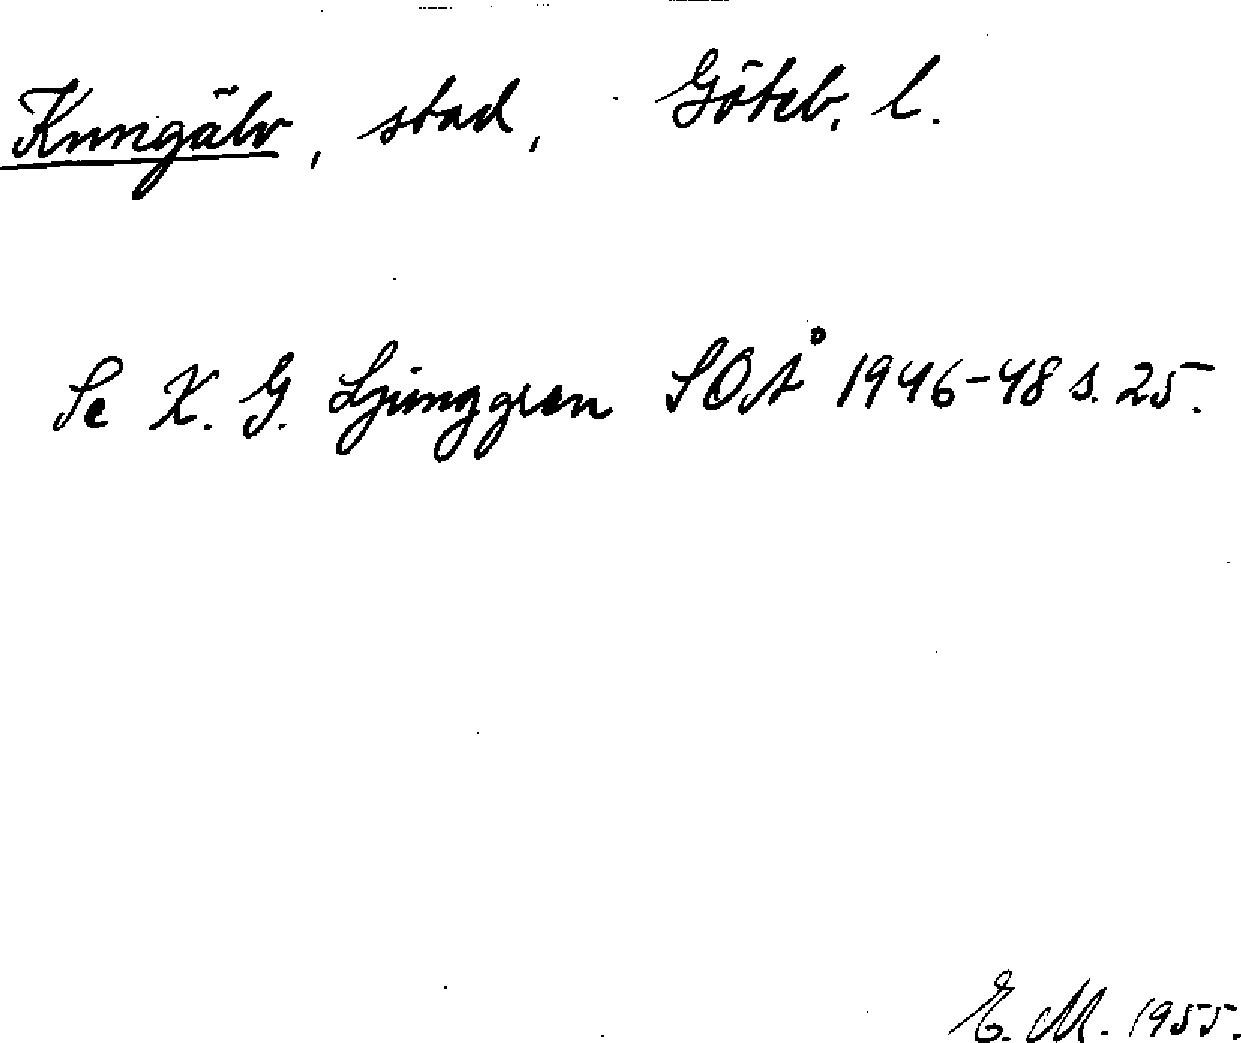 Kungälv, stad, Göteb. l.
Se K. G. Ljunggren SOÅ 1946-48 s. 25.
E. M. 1955.